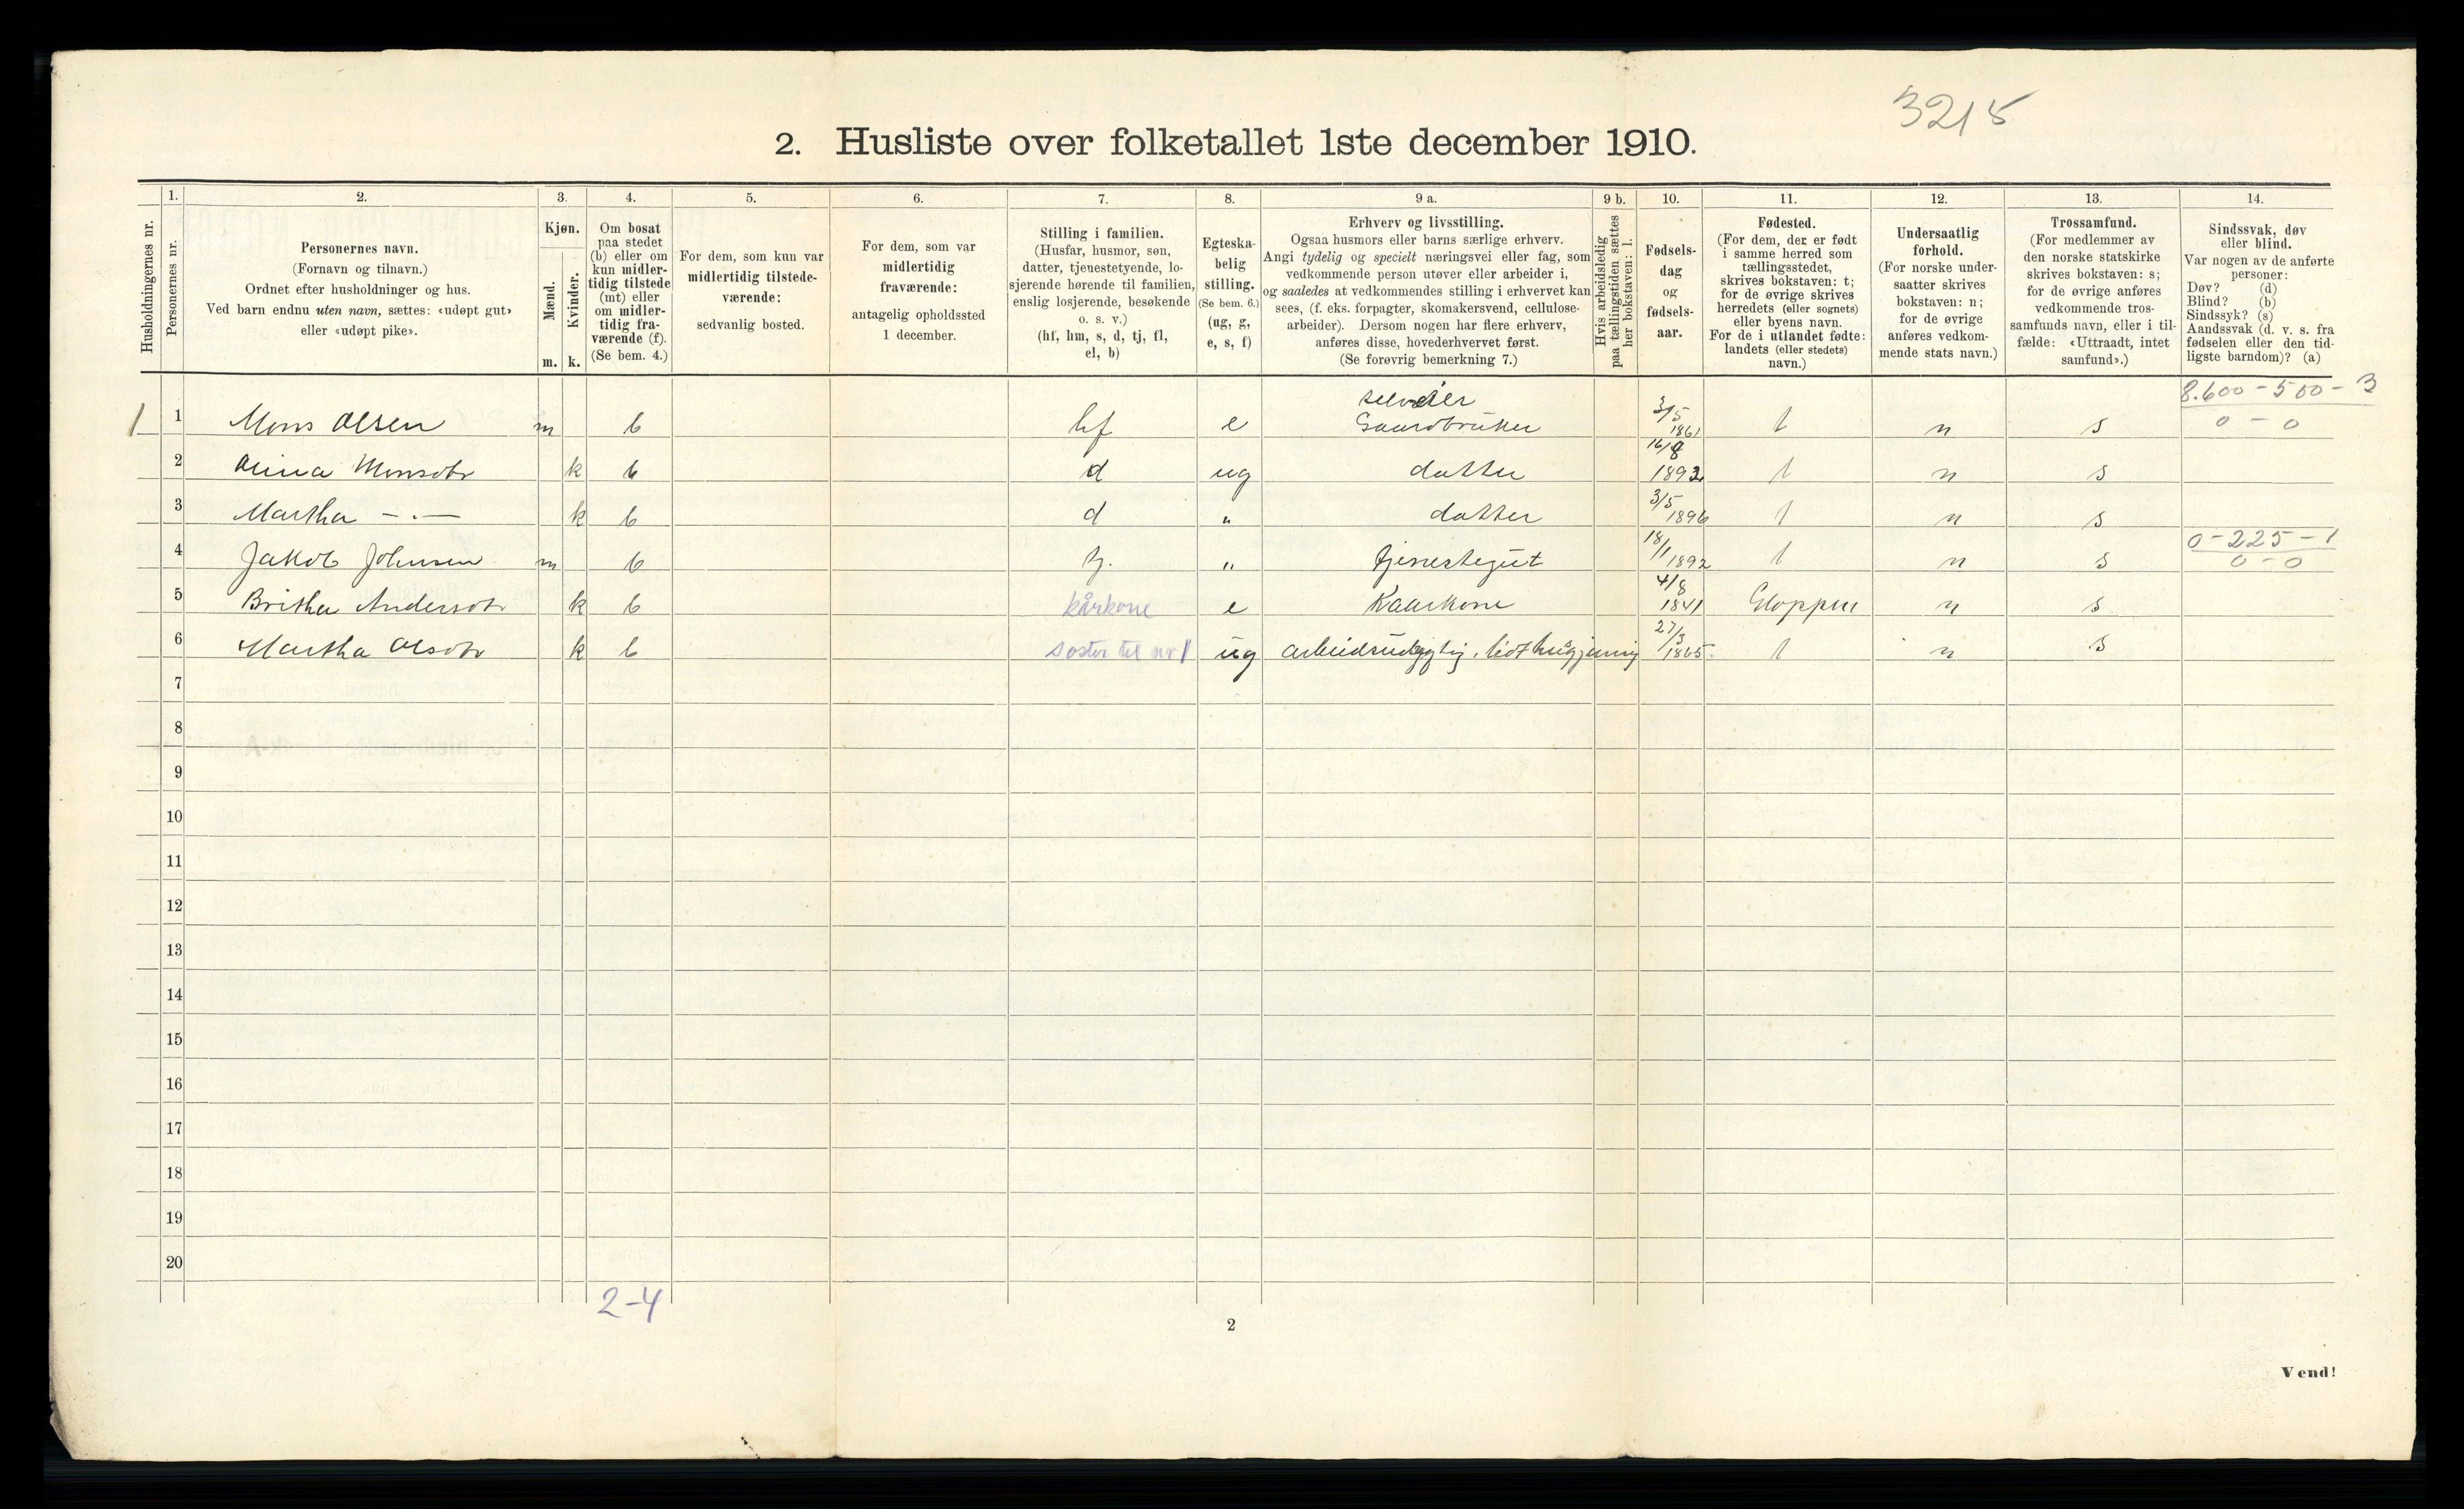 3215
2. Husliste over folketallet 1ste december 1910.
1. 2. 3. 4. 5. 6. 7. 8. 9 a. 9 b. 10. 11. 12. 13. 14.
Husholdningernes nr.
Personernes nr.
Personernes navn.
(Fornavn og tilnavn.)
Ordnet efter husholdninger og hus.
Ved barn endnu uten navn, sættes: «udøpt gut»
eller «udøpt pike».
Kjøn.
Mænd.
Kvinder.
m. k.
Om bosat
paa stedet
(b) eller om
kun midler-
tidig tilstede
(mt) eller
om midler-
tidig fra-
værende (f).
(Se bem. 4.)
For dem, som kun var
midlertidig tilstede-
værende:
sedvanlig bosted.
For dem, som var
midlertidig
fraværende:
antagelig opholdssted
1 december.
Stilling i familien.
(Husfar, husmor, søn,
datter, tjenestetyende, lo-
sjerende hørende til familien,
enslig losjerende, besøkende
o. s. v.)
(hf, hm, s, d, tj, fl,
el, b)
Egteska-
belig
stilling.
(Se bem. 6.)
(ug, g,
e, s, f)
Erhverv og livsstilling.
Ogsaa husmors eller barns særlige erhverv.
Angi tydelig og specielt næringsvei eller fag, som
vedkommende person utøver eller arbeider i,
og saaledes at vedkommendes stilling i erhvervet kan
sees, (f. eks. forpagter, skomakersvend, cellulose-
arbeider). Dersom nogen har flere erhverv,
anføres disse, hovederhvervet først.
(Se forøvrig bemerkning 7.)
Hvis arbeidsledig
paa tællingstiden sættes
her bokstaven: l.
Fødsels-
dag
og
fødsels-
aar.
Fødested.
(For dem, der er født
i samme herred som
tællingsstedet,
skrives bokstaven: t;
for de øvrige skrives
herredets (eller sognets)
eller byens navn.
For de i utlandet fødte:
landets (eller stedets)
navn.)
Undersaatlig
forhold.
(For norske under-
saatter skrives
bokstaven: n;
for de øvrige
anføres vedkom-
mende stats navn.)
Trossamfund.
(For medlemmer av
den norske statskirke
skrives bokstaven: s;
for de øvrige anføres
vedkommende tros-
samfunds navn, eller i til-
fælde: «Uttraadt, intet
samfund».)
Sindssvak, døv
eller blind.
Var nogen av de anførte
personer:
Døv? (d)
Blind? (b)
Sindssyk? (s)
Aandssvak (d. v. s. fra
fødselen eller den tid-
ligste barndom)? (a)
8.600 - 500 - 3
selveier
1 1 Mons Olsen m b hf e Gaardbruker 3/5 1861 t n s 0 - 0
2 Anna Monsdtr k b d ug datter 16/8 1892 t n s
3 Martha - . - k b d " datter 3/5 1896 t n s
0 - 225 - 1
4 Jakob Johnsen m b tj. " tjenestegut 18/1 1892 t n s 0 - 0
5 Britha Andersdtr k b kårkone e Kaarkone 4/8 1841 Gloppen n s
6 Martha Olsdtr k b søster til nr 1 ug 27/3 1865 t n s
7
8
9
10
11
12
13
14
15
16
17
18
19
20
2-4
2
Vend!